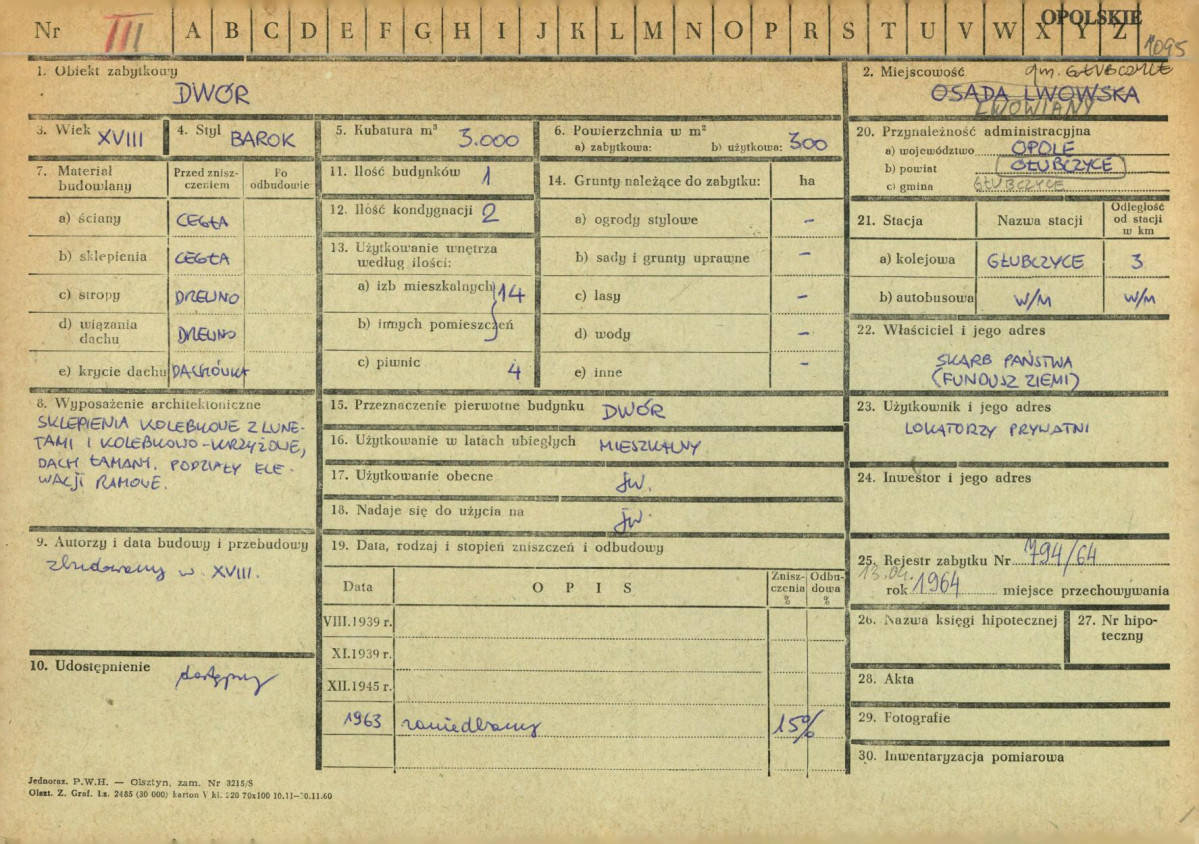 Nr III A B C D E F G H I J K L M N O P R S T U V W X Y Z
OPOLSKIE
1095
1. Obiekt zabytkowy
DWÓR
2. Miejscowość gm. GŁUBCZYCE
OSADA LWOWSKA
LWOWIANY
3. Wiek XVIII
4. Styl BAROK
5. Kubatura m³ 3.000
6. Powierzchnia w m²
a) zabytkowa: b) użytkowa: 300
20. Przynależność administracyjna
a) województwo OPOLE
b) powiat GŁUBCZYCE
c) gmina GŁUBCZYCE
7. Materiał budowlany
Przed zniszczeniem
Po odbudowie
a) ściany CEGŁA
b) sklepienia CEGŁA
c) stropy DREWNO
d) wiązania dachu DREWNO
e) krycie dachu DACHÓWKA
11. Ilość budynków 1
12. Ilość kondygnacji 2
13. Użytkowanie wnętrza
według ilości:
a) izb mieszkalnych 14
b) innych pomieszczeń
c) piwnic 4
14. Grunty należące do zabytku: ha
a) ogrody stylowe –
b) sady i grunty uprawne –
c) lasy –
d) wody –
e) inne –
21. Stacja
Nazwa stacji
Odległość od stacji w km
a) kolejowa GŁUBCZYCE 3
b) autobusowa W/M W/M
22. Właściciel i jego adres
SKARB PAŃSTWA
(FUNDUSZ ZIEMI)
8. Wyposażenie architektoniczne
SKLEPIENIA KOLEBKOWE Z LUNE-
TAMI I KOLEBKOWO-KRZYŻOWE,
DACH ŁAMANY. PODZIAŁY ELE-
WACJI RAMOWE.
15. Przeznaczenie pierwotne budynku DWÓR
16. Użytkowanie w latach ubiegłych MIESZKALNY
17. Użytkowanie obecne jw.
18. Nadaje się do użycia na jw.
23. Użytkownik i jego adres
LOKATORZY PRYWATNI
24. Inwestor i jego adres
9. Autorzy i data budowy i przebudowy
zbudowany w. XVIII.
10. Udostępnienie dostępny
19. Data, rodzaj i stopień zniszczeń i odbudowy
Data OPIS Zniszczenia % Odbudowa %
VIII.1939 r.
XI.1939 r.
XII.1945 r.
1963 zaniedbany 15%
25. Rejestr zabytku Nr 794/64
13.04.
rok 1964 miejsce przechowywania
26. Nazwa księgi hipotecznej
27. Nr hipoteczny
28. Akta
29. Fotografie
30. Inwentaryzacja pomiarowa
Jednoraz. P.W.H. — Olsztyn, zam. Nr 3215/S
Olszt. Z. Graf. Lz. 2485 (30 000) karton V kl. 220 70x100 10.11—30.11.60